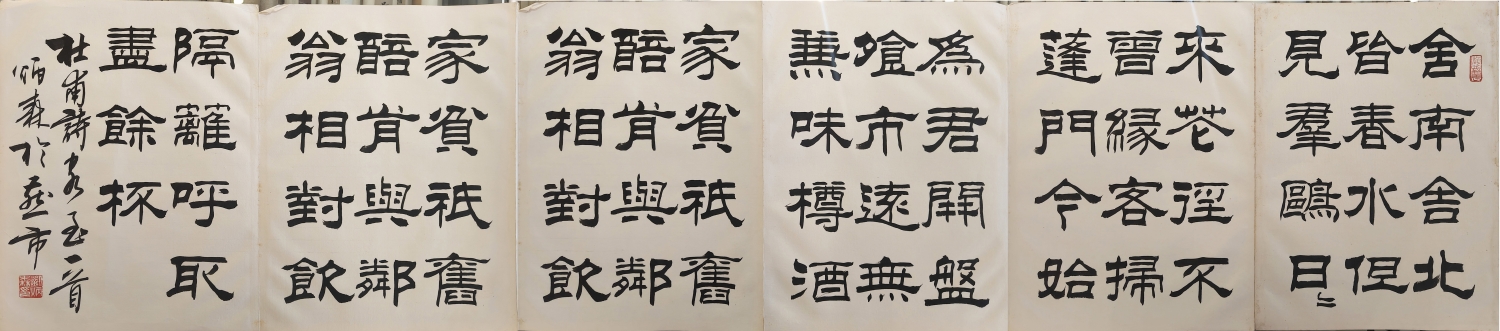 舍南舍北
皆春水但
見羣鷗日〻
來花徑不
曾緣客掃
蓬門今始
為君開盤
飧市遠無
兼味樽酒
家貧祇舊
醅肯與鄰
翁相對飲
家貧祇舊
醅肯與鄰
翁相對飲
隔籬呼取
盡餘杯
杜甫詩客至一首
炳森於燕市